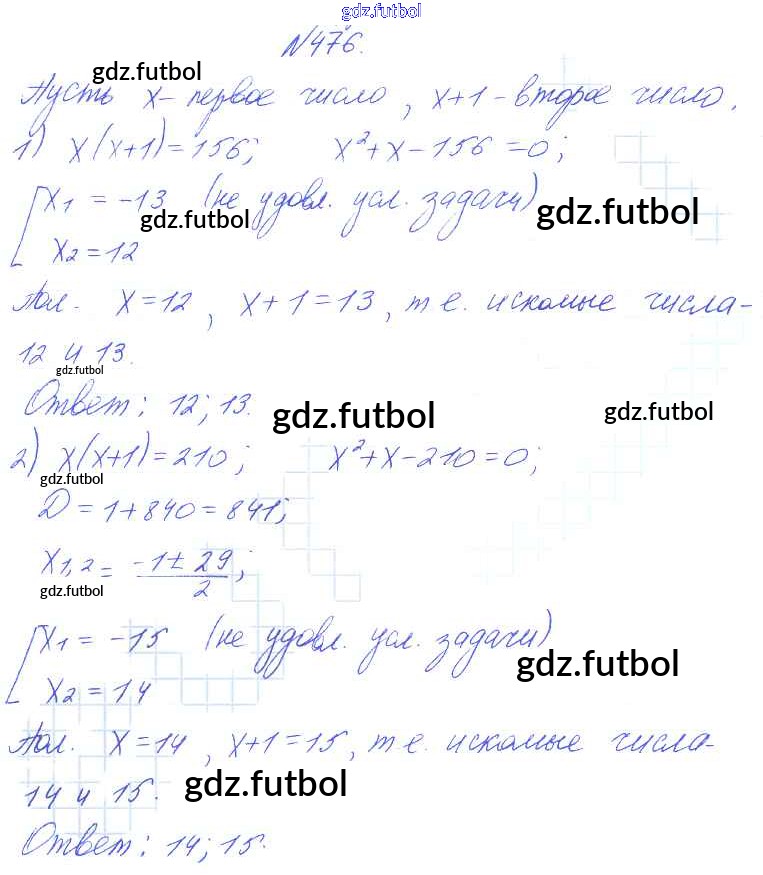 gdz.futbol
N476.
gdz.futbol
Пусть x - первое число, x+1 - второе число.
1) x(x+1)=156; x²+x-156=0;
[x₁ = -13 (не удовл. усл. задачи)
gdz.futbol gdz.futbol
x₂=12
Пол. x=12, x+1=13, т.е. искомые числа-
12 и 13.
gdz.futbol
Ответ: 12; 13.
gdz.futbol gdz.futbol
2) x(x+1)=210; x²+x-210=0;
gdz.futbol
D=1+840=841;
x₁,₂ = (-1±29)/2;
gdz.futbol
[x₁ = -15 (не удовл. усл. задачи)
gdz.futbol
x₂=14
Пол. x=14, x+1=15, т.е. искомые числа
14 и 15. gdz.futbol
Ответ: 14; 15.